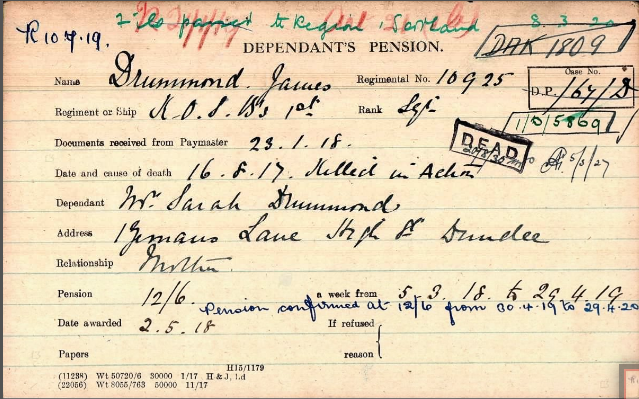 to Region Scotland 8.3.20
R 10.7.19.
DAK 1809
DEPENDANT'S PENSION.
Name Drummond. James Regimental No. 10925
Case No.
D.P. /67/D
Regiment or Ship K.O.S.B's 1st Rank Sgt
11D/5869
Documents received from Paymaster 23.1.18.
DEAD
5/3/27
Date and cause of death 16.8.17. Killed in Action
Dependant Mrs Sarah Drummond
Address Lane High St Dundee
Relationship Mother.
Pension 12/6. a week from 5.3.18. to 29.4.19
Pension confirmed at 12/6 from 30.4.19 to 29.4.20
Date awarded 2.5.18 If refused
Papers reason
H15/1179
(11238) Wt 50720/6 30000 1/17 H & J, Ld
(22056) Wt 8055/763 50000 11/17